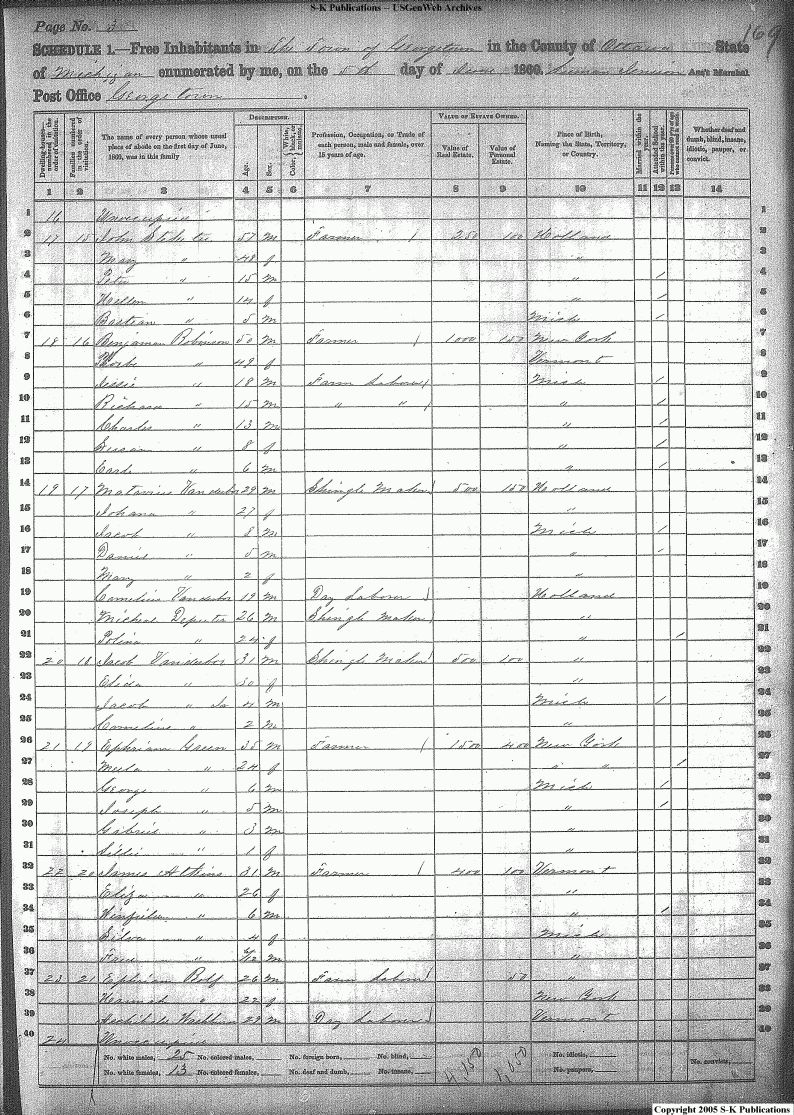 S-K Publications -- USGenWeb Archives
Page No. 3
169
SCHEDULE 1.—Free Inhabitants in The Town of Georgetown in the County of Ottawa State
of Michigan enumerated by me, on the 5th day of June 1860. Ass't Marshal
Post Office Georgetown.
Dwelling-houses— numbered in the order of visitation.
Families numbered in the order of visitation.
The name of every person whose usual place of abode on the first day of June, 1860, was in this family
DESCRIPTION.
Age.
Sex.
Color, White, black, or mulatto.
Profession, Occupation, or Trade of each person, male and female, over 15 years of age.
VALUE OF ESTATE OWNED.
Value of Real Estate.
Value of Personal Estate.
Place of Birth, Naming the State, Territory, or Country.
Married within the year.
Attended School within the year.
Whether deaf and dumb, blind, insane, idiotic, pauper, or convict.
1 2 3 4 5 6 7 8 9 10 11 12 13 14
1 16 1
2 17 15 John 57 m Farmer 250 100 Holland 2
3 Mary " 48 f " 3
4 Peter " 15 m " / 4
5 " 14 f " / 5
6 Bastian " 5 m Mich / 6
7 18 16 Benjamin Robinson 50 m Farmer 1000 150 New York 7
8 Phoebe " 49 f Vermont 8
9 Jessie " 18 m Farm Laborer Mich / 9
10 Richard " 15 m " " " / 10
11 Charles " 13 m " / 11
12 " 8 f " / 12
13 Earl " 6 m " / 13
14 19 17 29 m Shingle Maker 500 150 Holland 14
15 Johana " 27 f " 15
16 Jacob " 8 m Mich / 16
17 Daniel " 5 m " / 17
18 Mary " 2 f " 18
19 Cornelius Vanderbor 19 m Day Laborer Holland 19
20 Michael Depeuter 26 m Shingle Maker " 20
21 " 24 f " / 21
22 20 18 Jacob Vanderbor 31 m Shingle Maker 500 100 " 22
23 Eliza " 30 f " 23
24 Jacob " Jr 4 m Mich / 24
25 Cornelius " 2 m " 25
26 21 19 Ephriam Green 35 m Farmer 1500 400 New York 26
27 " 24 f " " / 27
28 George " 6 m Mich / 28
29 Joseph " 5 m " / 29
30 Gabriel " 3 m " 30
31 Lillie " 1 f " 31
32 22 20 James Atkins 31 m Farmer 400 100 Vermont 32
33 Eliza " 26 f " 33
34 Winfield " 6 m " / 34
35 " 4 f Mich 35
36 " m " 36
37 23 21 Ephrian 26 m Farm Labor 50 " 37
38 Hannah " 22 f New York 38
39 29 m Day Laborer Vermont 39
40 24 40
No. white males, 25 No. colored males, No. foreign born, No. blind, No. idiotic, No. convicts,
No. white females, 13 No. colored females, No. deaf and dumb, No. insane, 4,150 1,050 No. paupers,
Copyright 2005 S-K Publications